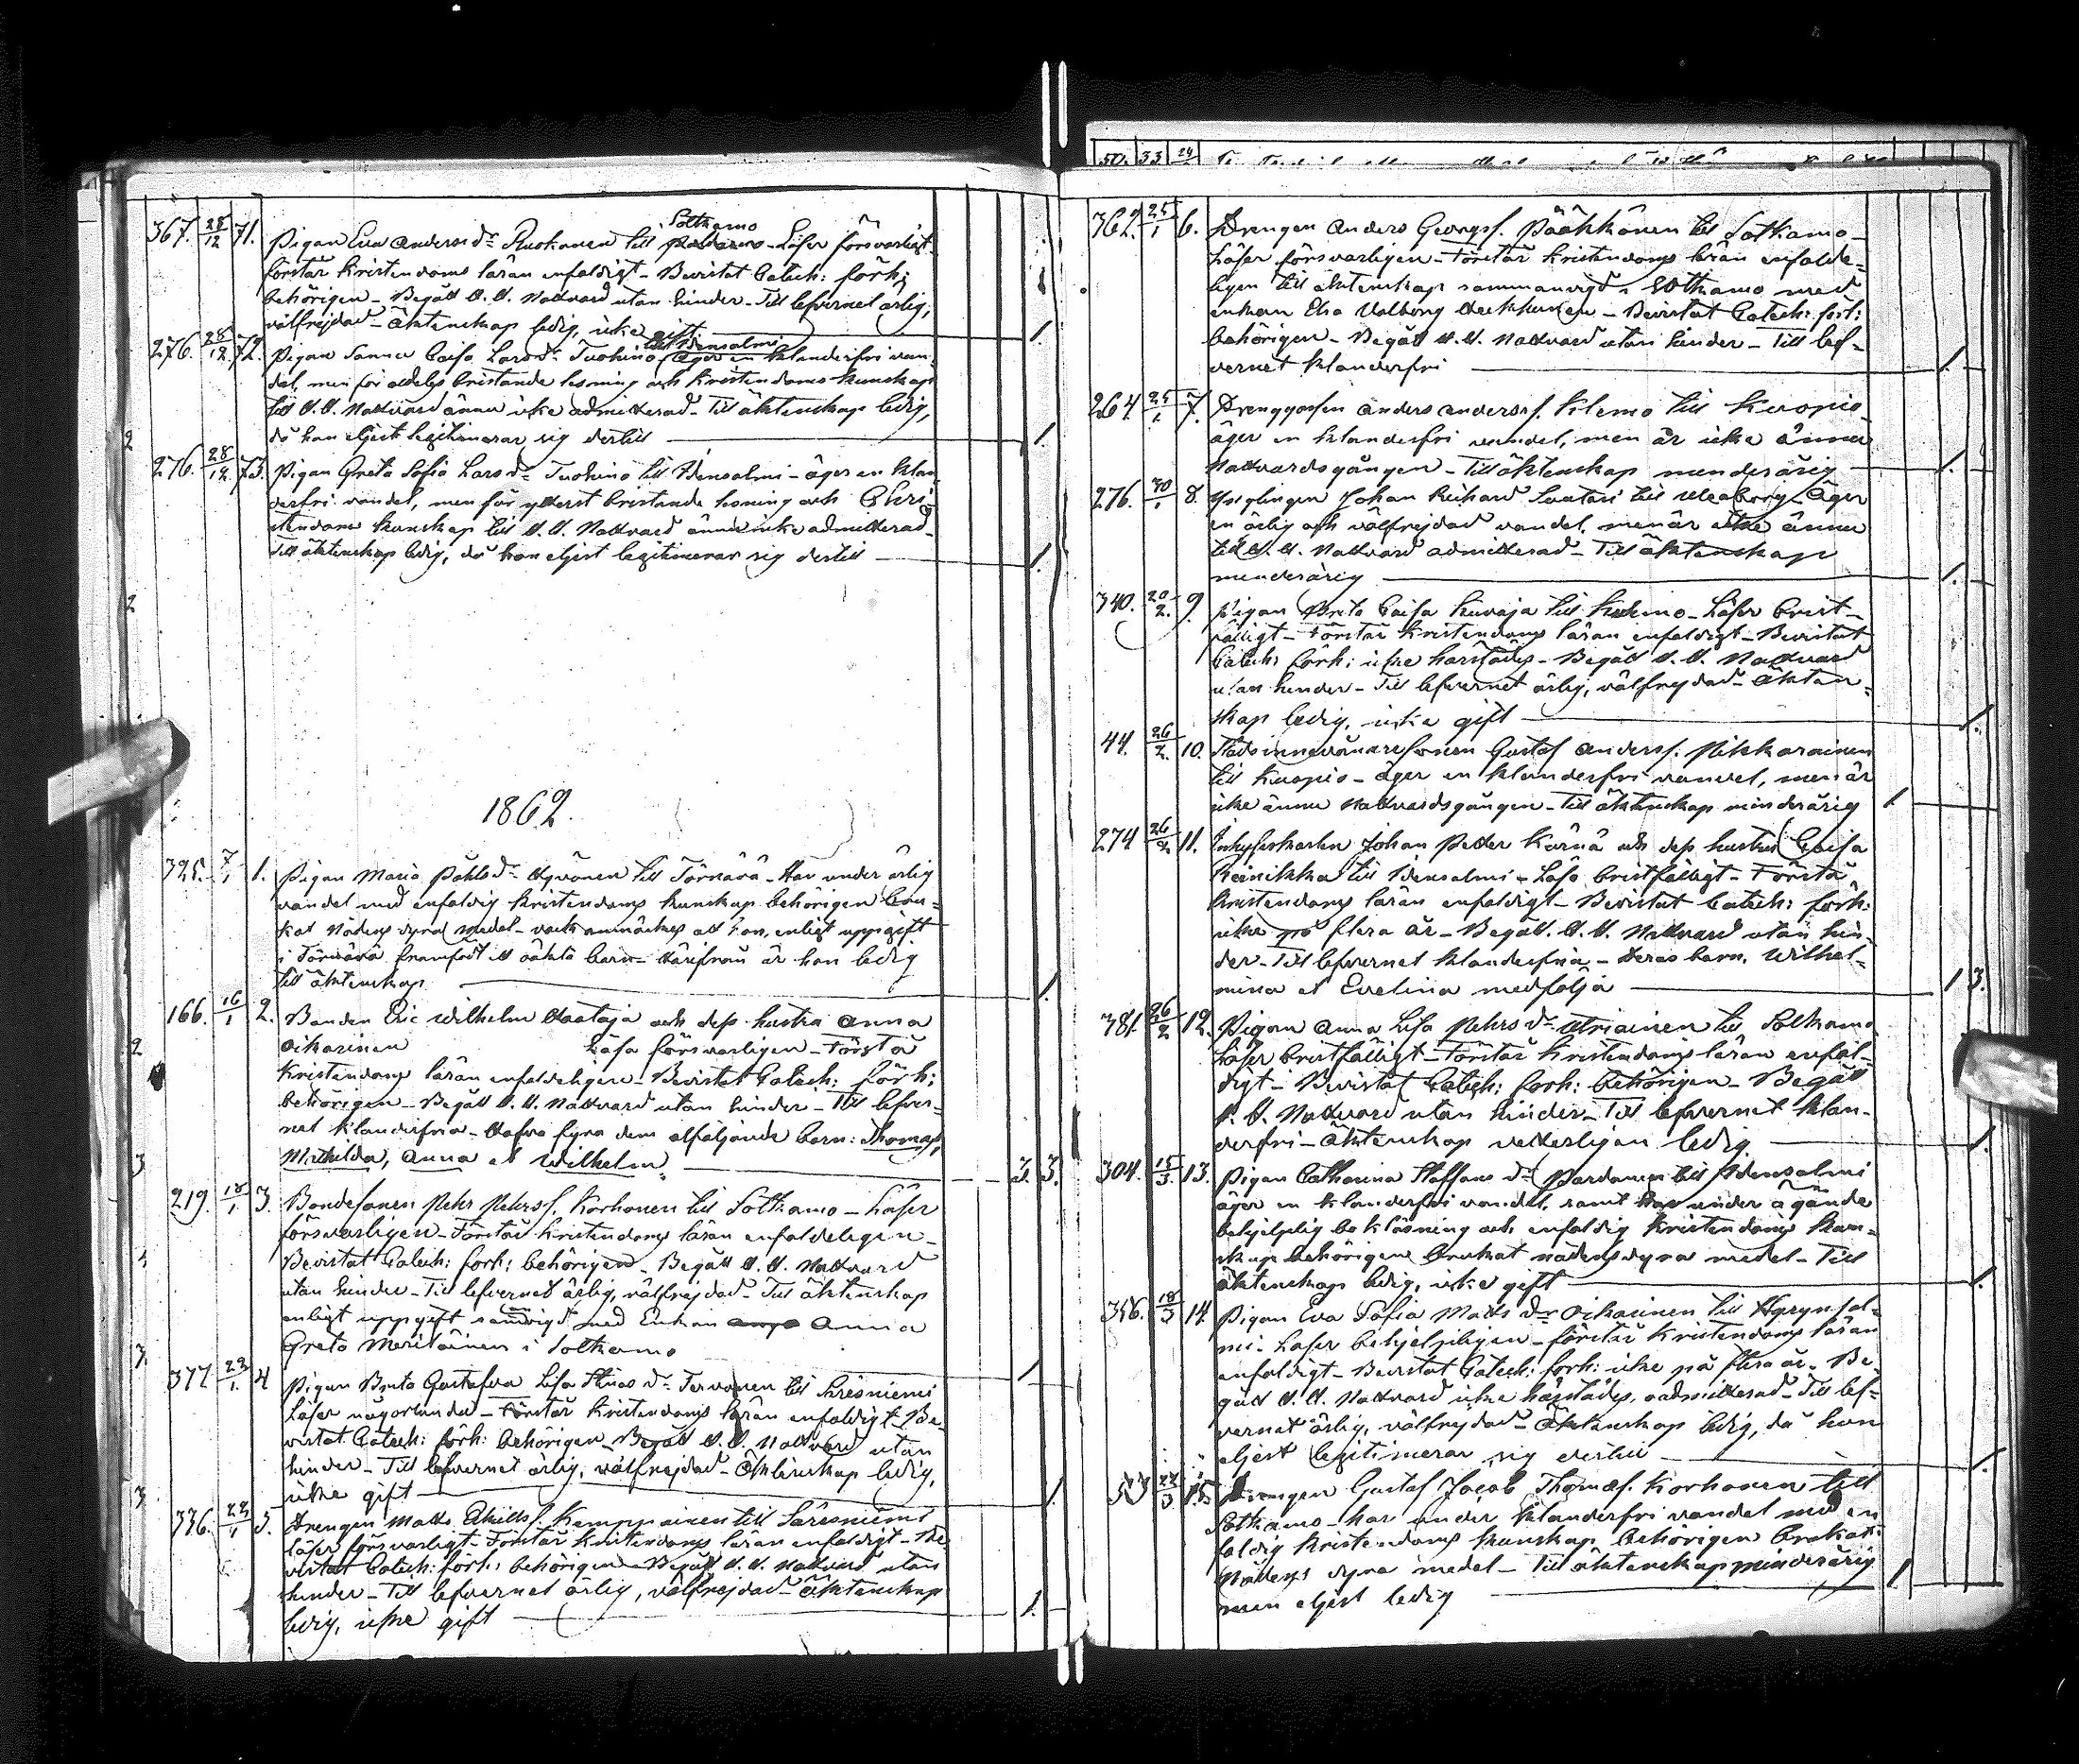 367. 28/12 71. Pigan Eva Andersdr Ruokanen till Sotkamo - Läser försvarligt
förstår Kristendoms läran enfaldigt - Bevistat Catech: förh:
behörigen - Begått H. H. Nattvard utan hinder - Till lefvernet ärlig,
välfrejdad - Äktenskap ledig, icke gift. 1.
276. 28/12 72. Pigan Sanna Caisa Larsdr Tuohino till Idensalmi äger en klanderfri van-
del, men för alldeles bristande läsning och Kristendoms kunskap
till H. H. Nattvard ännu icke admitterad - Till äktenskap ledig,
då hon eljest legitimerar sig dertill 1.
276. 28/12 73. Pigan Greta Sofia Larsdr Tuohino till Idensalmi - äger en klan-
derfri vandel, men för ytterst bristande läsning och Chri-
stendoms kunskap till H. H. Nattvard ännu icke admitterad -
Till äktenskap ledig, då hon eljest legitimerar sig dertill 1.
1862.
325. 7/1 1. Pigan Maria Påhlsdr Hyvönen till Törnävä - Har under ärlig
vandel med enfaldig Kristendoms kunskap behörigen bru-
kat Nådens dyra medel - dock anmärkes att hon, enligt uppgift
i Törnävä framfödt ett oäkta barn - Härifrån är hon ledig
till äktenskap 1.
166. 16/1 2. Bonden Eric Wilhelm Haataja och dess hustru Anna
Oikarinen Läsa försvarligen - Förstå
Kristendoms läran enfaldeligen - Bevistat Catech: förh:
behörigen - Begått H. H. Nattvard utan hinder - Till lefver-
net klanderfria - Hafva fyra dem åtföljande barn: Thomas,
Mathilda, Anna et Wilhelm. 3. 3.
219. 18/1 3. Bondesonen Pehr Pehrss. Korhonen till Sotkamo - Läser
försvarligen - Förstår Kristendoms läran enfaldeligen -
Bevistat Catech: förh: behörigen - Begått H. H. Nattvard
utan hinder - Till lefvernet ärlig, välfrejdad - Till äktenskap
enligt uppgift samvigd med Enkan Anna
Greta Meriläinen i Sotkamo 1
377 22/1 4 Pigan Brita Gustafva Lisa Stinas dr Tervonen till Säresniemi
Läser någorlunda - Förstår Kristendoms läran enfaldigt - Be-
vistat Catech: förh: behörigen - Begått H. H. Nattvard utan
hinder - Till lefvernet ärlig, välfrejdad - Äktenskap ledig,
icke gift 1.
336. 22/1 5. Drengen Matts Kemppainen till Säresniemi
läser försvarligt - Förstår Kristendoms läran enfaldigt - Be-
vistat Catech: förh: behörigen - Begått H. H. Nattvard utan
hinder - Till lefvernet ärlig, välfrejdad - Äktenskap
ledig, icke gift 1.
50. 33 24
362. 25/1 6. Drengen Anders Georgss. Pääkkönen till Sotkamo -
Läser försvarligen - Förstår Kristendoms läran enfalde-
ligen till äktenskap sammanvigd i Sotkamo med
enkan Elsa Valborg - Bevistat Catech: förh:
behörigen - Begått H. H. Nattvard utan hinder - Till lef-
vernet klanderfri 1.
264 25/1 7. Drenggossen Anders Anderss. Klemo till Kuopio
äger en klanderfri vandel, men är icke ännu
Nattvardsgången - Till äktenskap minderårig 1.
276. 30/1 8. Ynglingen Johan Richard till Uleåborg - Äger
en ärlig och välfrejdad vandel, men är icke ännu
till H. H. Nattvard admitterad - Till äktenskap
minderårig 1.
340. 20/2. 9. Pigan Brita Caisa Kuvaja till Kuhmo - Läser brist-
fälligt - Förstår Kristendoms läran enfaldigt - Bevistat
Catech: förh: icke härstädes - Begått H. H. Nattvard
utan hinder - Till lefvernet ärlig, välfrejdad - Äkten-
skap ledig, icke gift 1.
44. 26/2. 10. Gustaf Anderss. Pikkarainen
till Kuopio - äger en klanderfri vandel, men är
icke ännu Nattvardsgången - Till äktenskap minderårig 1
274 26/2 11. Inhyseskarlen Johan Petter Kärnä och dess hustru Caisa
Reinikka till Idensalmi - Läsa bristfälligt - Förstå
Kristendoms läran enfaldigt - Bevistat Catech: förh:
icke på flera år - Begått H. H. Nattvard utan hin-
der - Till lefvernet klanderfria - Deras barn, Wilhel-
mina et Evelina medfölja 1 3.
381. 26/2 12. Pigan Anna Lisa Pehrsdr till Sotkamo
Läser bristfälligt - Förstår Kristendoms läran enfal-
digt - Bevistat Catech: förh: behörigen - Begått
H. H. Nattvard utan hinder - Till lefvernet klan-
derfri - Äktenskap vetterligen ledig 1.
304. 15/3. 13. Pigan Catharina Staffansdr Pardanen till Idensalmi
äger en klanderfri vandel, samt har under ägande
behjelplig bokläsning och enfaldig Kristendoms kun-
skap behörigen brukat nådens dyra medel - Till
äktenskap ledig, icke gift 1.
356. 18/3 14. Pigan Eva Sofia Mattsdr Oikarinen till Hyrynsal-
mi - Läser behjelpligen - förstår Kristendoms läran
enfaldigt - Bevistat Catech: förh: icke på flera år - Be-
gått H. H. Nattvard icke härstädes admitterad - Till lef-
vernet ärlig, välfrejdad - Äktenskap ledig, då hon
eljest legitimerar sig dertill 1.
22/3 15. Drengen Gustaf Jacob Thomass. Korhonen till
Sotkamo - har under klanderfri vandel med en
faldig Kristendoms kunskap behörigen brukat
Nådens dyra medel - Till äktenskap minderårig
men eljest ledig 1.